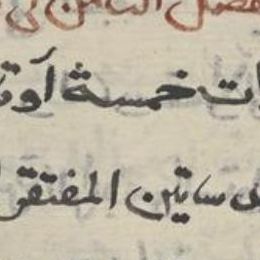 الفصل الثامن في
ات خمسة أوتا
ساتين المفتقر